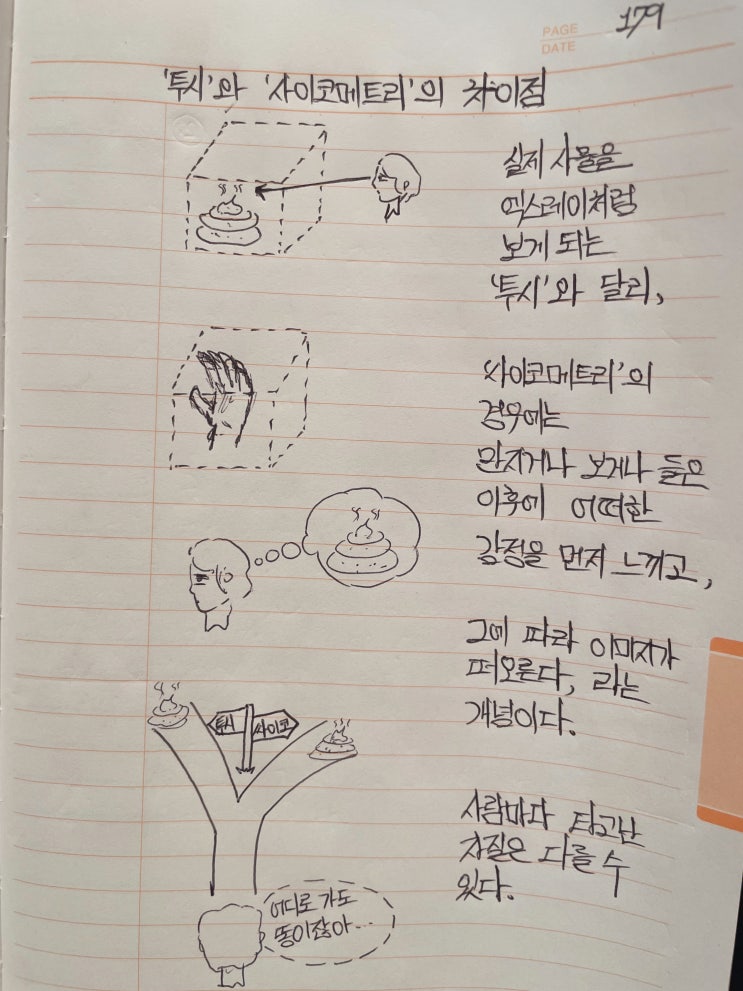 PAGE
DATE
179
'투시'와 '사이코메트리'의 차이점
실제 사물을
엑스레이처럼
보게 되는
'투시'와 달리,
'사이코메트리'의
경우에는
만지거나 보거나 들은
이후에 어떠한
감정을 먼저 느끼고,
그에 따라 이미지가
떠오른다, 라는
개념이다.
투시
싸이코
사람마다 타고난
자질은 다를 수
있다.
어디로 가도
똥이잖아...